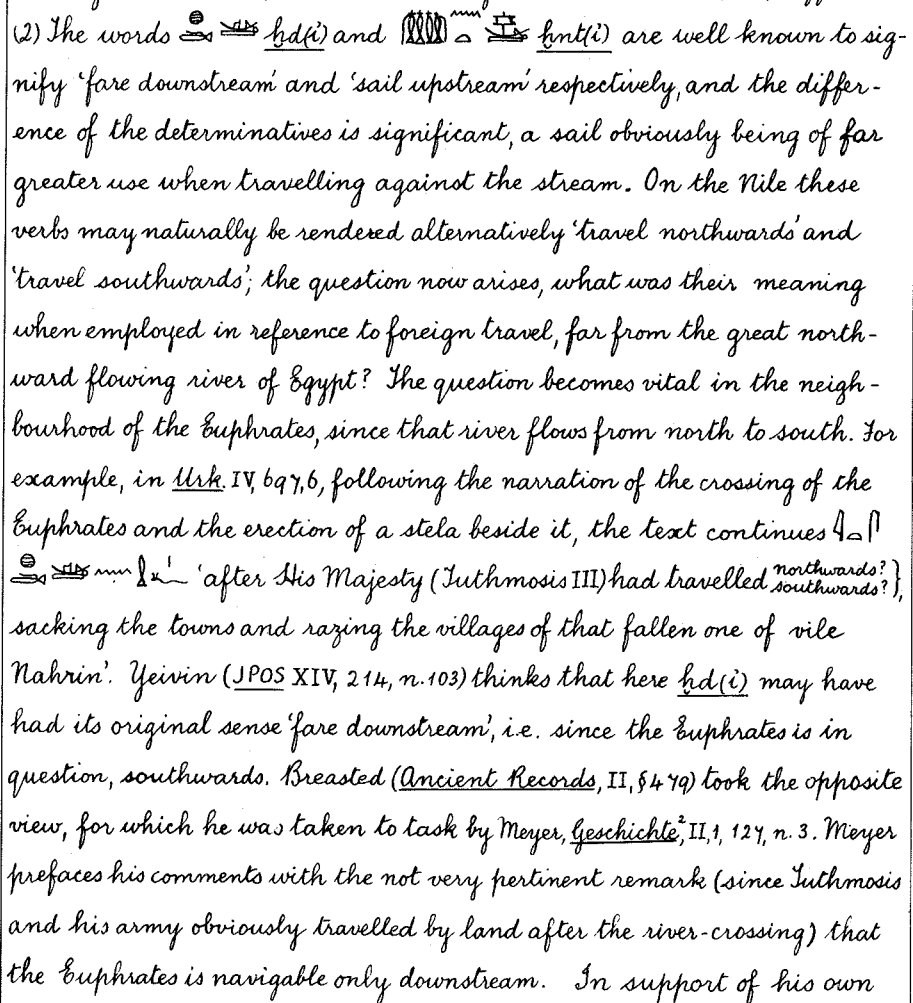 (2) The words 𓐍𓂧 𓊛 ḫd(i) and 𓏃𓈖𓏏𓊞 ḫnt(i) are well known to sig-
nify ‘fare downstream’ and ‘sail upstream’ respectively, and the differ-
ence of the determinatives is significant, a sail obviously being of far
greater use when travelling against the stream. On the Nile these
verbs may naturally be rendered alternatively ‘travel northwards’ and
‘travel southwards’; the question now arises, what was their meaning
when employed in reference to foreign travel, far from the great north-
ward flowing river of Egypt? The question becomes vital in the neigh-
bourhood of the Euphrates, since that river flows from north to south. For
example, in Urk. IV, 697,6, following the narration of the crossing of the
Euphrates and the erection of a stela beside it, the text continues
‘after His Majesty (Tuthmosis III) had travelled northwards? southwards? },
sacking the towns and razing the villages of that fallen one of vile
Nahrin’. Yeivin (JPOS XIV, 214, n.103) thinks that here ḫd(i) may have
had its original sense ‘fare downstream’, i.e. since the Euphrates is in
question, southwards. Breasted (Ancient Records, II, §479) took the opposite
view, for which he was taken to task by Meyer, Geschichte², II,1, 127, n. 3. Meyer
prefaces his comments with the not very pertinent remark (since Tuthmosis
and his army obviously travelled by land after the river-crossing) that
the Euphrates is navigable only downstream. In support of his own